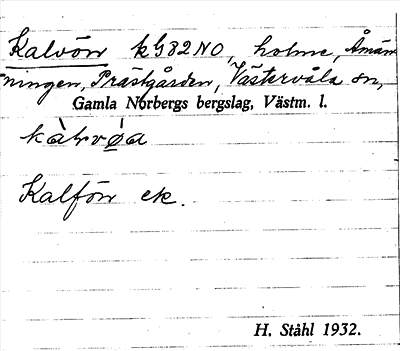 Kalvön kG82NO, holme, Åmän-
ningen, Prästgården, Västervåla sn,
Gamla Norbergs bergslag, Västm. l.
Kalfön ek.
H. Ståhl 1932.